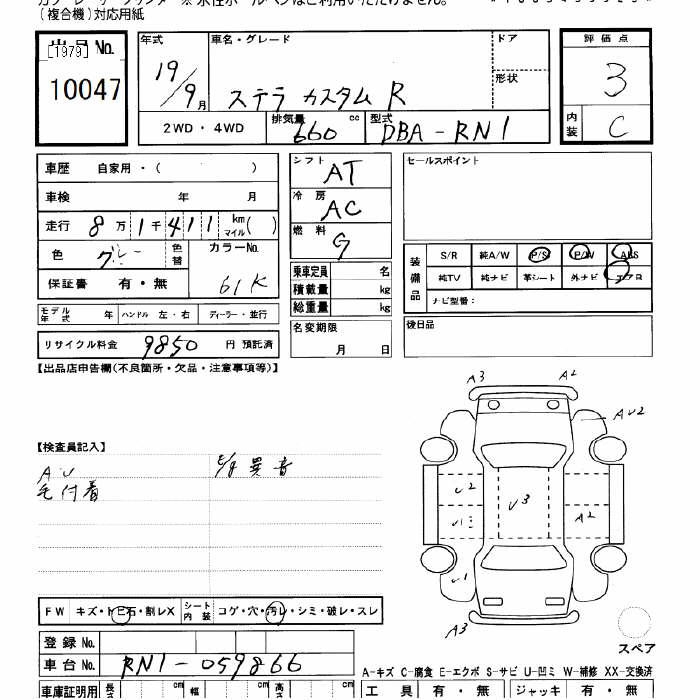 (複合機)対応用紙
出品No.
[1979]
10047
年式
19/9月
車名・グレード
ステラ カスタム R
ドア
形状
評価点
3
内装
C
2WD・4WD
排気量
660 cc
型式
DBA-RN1
車歴 自家用・( )
車検 年 月
走行 8万1千411 km マイル( )
色 グレー 色替 カラーNo. 61K
保証書 有・無
モデル年式 年 ハンドル 左・右 ディーラー・並行
リサイクル料金 9850 円 預託済
シフト AT
冷房 AC
燃料 G
乗車定員 名
積載量 kg
総重量 kg
名変期限
月 日
セールスポイント
装備品
S/R 純A/W P/S P/W ABS
純TV 純ナビ 革シート 外ナビ エアB
ナビ型番:
後日品
【出品店申告欄(不良箇所・欠品・注意事項等)】
【検査員記入】
AU
毛付着
E/g 異音
A3 A2
AU2
U2
U3
A2
U1
A3
スペア
FW キズ・トビ石・割レX シート内装 コゲ・穴・汚レ・シミ・破レ・スレ
登録No.
車台No. RN1-059866
A-キズ C-腐食 E-エクボ S-サビ U-凹ミ W-補修 XX-交換済
車庫証明用 長さ cm 幅 cm 高さ cm
工具 有・無 ジャッキ 有・無